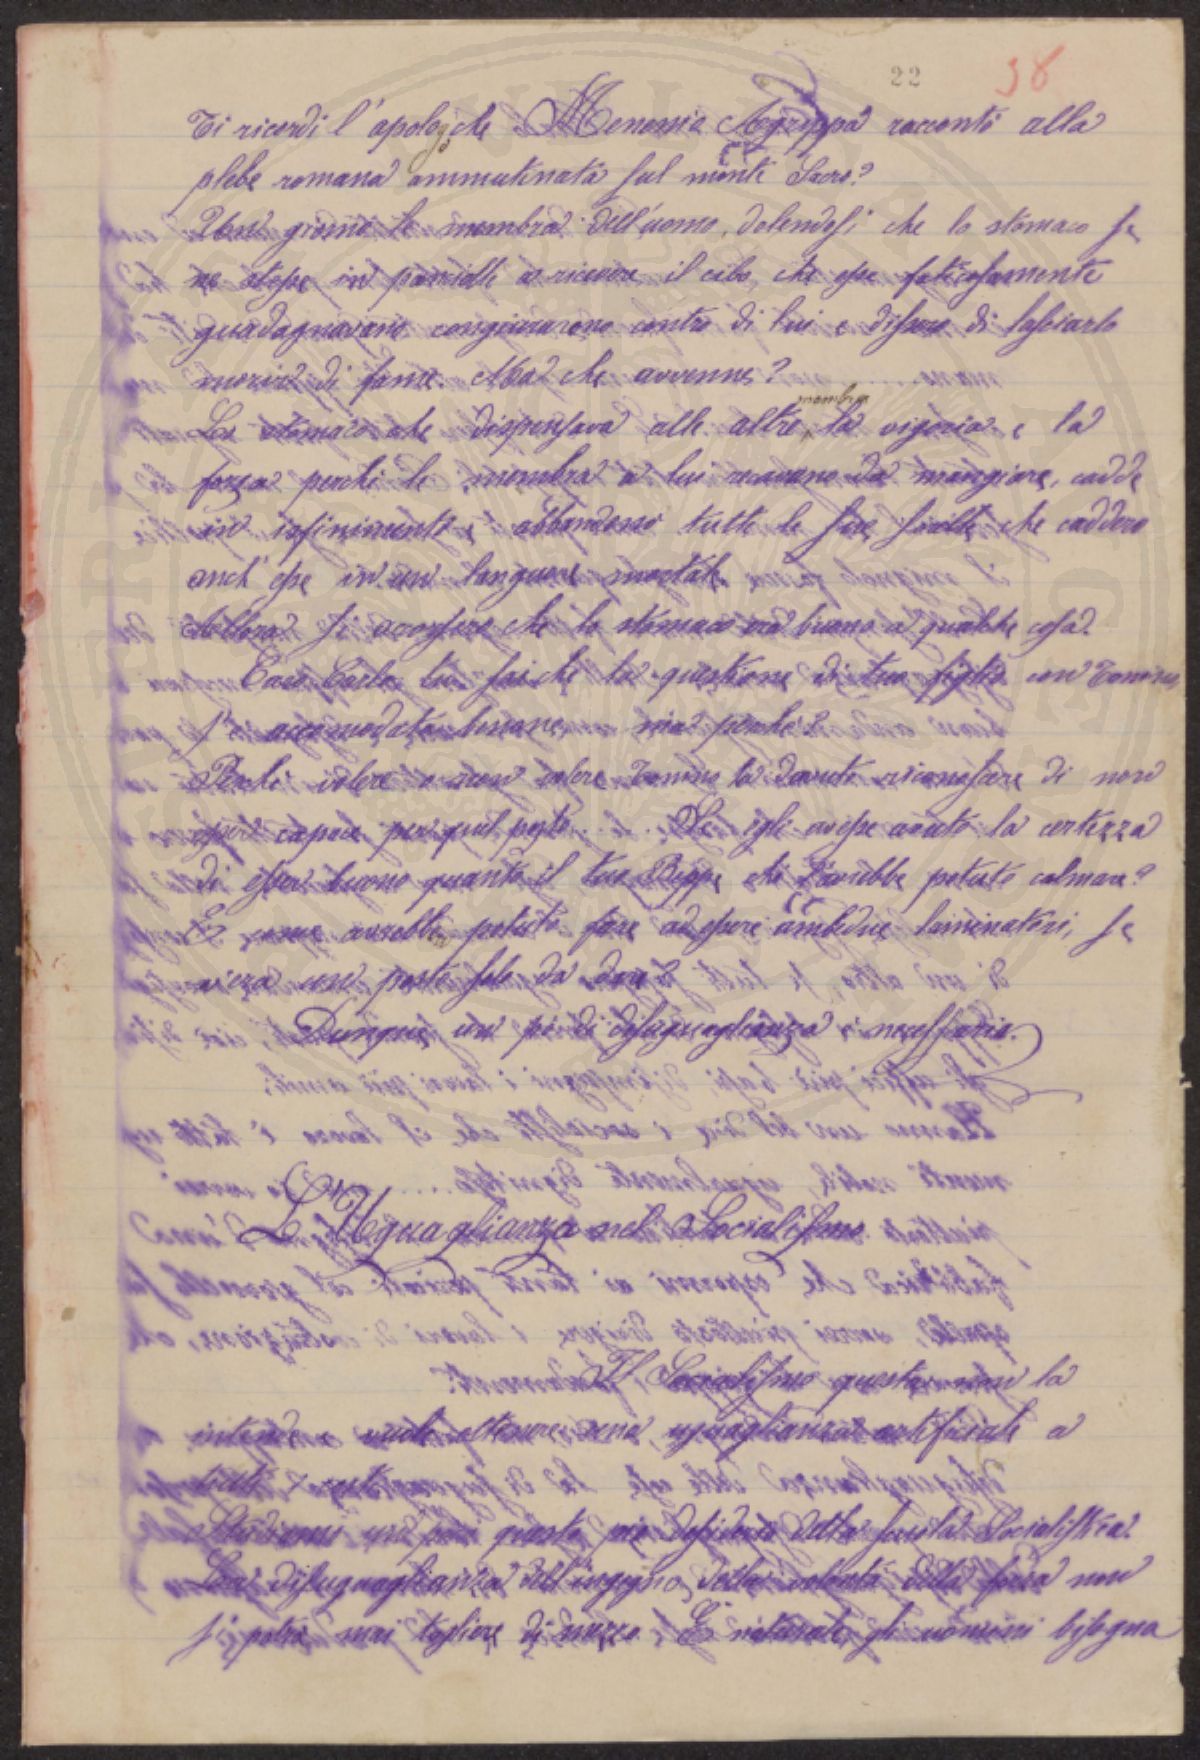 22 38
Ti ricordi l'apologo che Menenio Agrippa raccontò alla
plebe romana ammutinata sul monte Sacro?
Un giorno le membra dell'uomo, dolendosi che lo stomaco se
ne stesse in panciolle a ricevere il cibo, che esse faticosamente
guadagnavano congiurarono contro di lui e di lasciarlo
morire di fame. Ma che avvenne?
membra
Lo stomaco che dispensava alle altre la vigoria e la
forza perchè le membra a lui recavano da mangiare, cadde
in isfinimento e abbandonò tutte le sue che caddero
anch'esse in un languore mortale
Allora si accorsero che lo stomaco era buono a qualche cosa.
Caro Carlo, tu sai che la questione di tuo figlio con Tonino
s'è accomodata benone, ma perchè?
Perchè volere o non volere Tonino ha dovuto riconoscere di non
essere capace per quel posto... Se egli avesse avuto la certezza
di esser buono quanto il tuo Beppe chi l'avrebbe potuto calmare?
E come avrebbe potuto fare ad essere ambedue laminatori, se
un posto solo da dare?
Dunque un po' di disuguaglianza è necessaria.
L'Uguaglianza nel Socialismo
Il Socialismo questa non la
intende e vuole ottenere una uguaglianza artificiale a
tutti i costi.
Studiamo un poco questo pio desiderio della scuola Socialistica.
La disuguaglianza dell'ingegno, della volontà della forza non
si potrà mai togliere di mezzo. È naturale, gli uomini bisogna